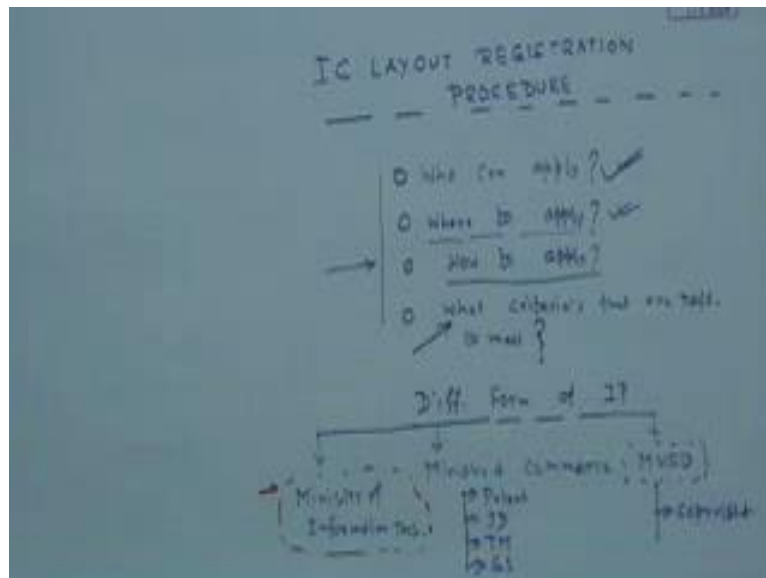 IC LAYOUT REGISTRATION
PROCEDURE
O Who can apply? ✓
O Where to apply? ✓
O How to apply?
O What criteria's that one
to meet?
Diff. Form of IP
Ministry of Commerce
Ministry of
Information
→ Patent
→ ID
→ TM
→ GI
→ Copyright